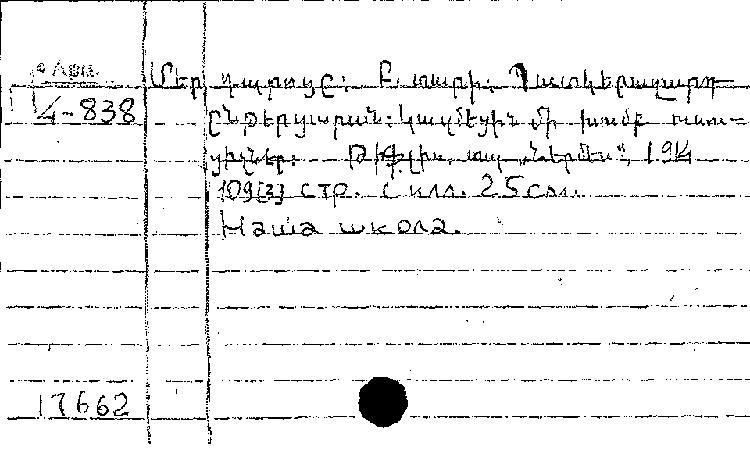 Մեր դպրոցը: Բ. տարի: Պատկերազարդ
4-838
ընթերցարան: Կազմեցին մի խումբ ուսու-
ցիչներ: Թիֆլիս, տպ. „Հերմես“, 1914
109[3] стр. с илл. 25 см.
Наша школа.
17662